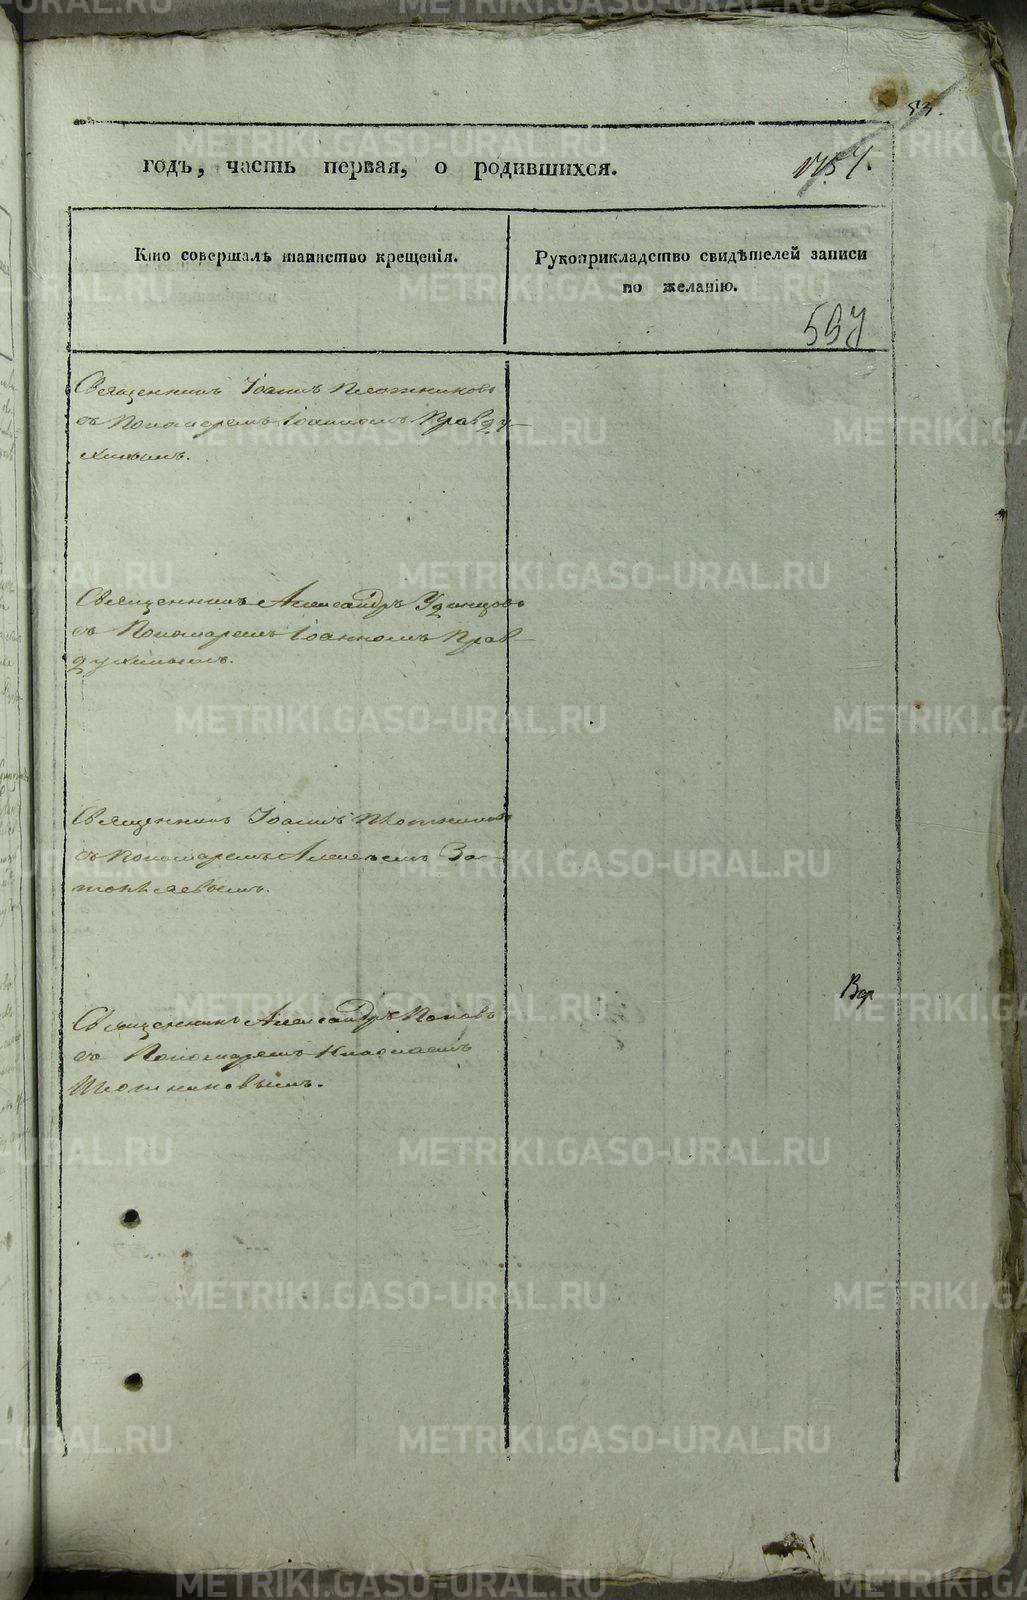 53.
годъ, часть первая, о родившихся.
Кто совершалъ таинство крещенія.
Рукоприкладство свидѣтелей записи
по желанію.
597
Священникъ Іоаннъ Плотниковъ
съ Пономаремъ Іоанномъ Правду-
хинымъ.
Священникъ Александръ Удинцовъ
съ Пономаремъ Іоанномъ Прав-
духинымъ.
Священникъ Іоаннъ Плотниковъ
съ Пономаремъ Алексѣемъ За-
топляевымъ.
Священникъ Александръ Поповъ
съ Пономаремъ
Плотниковымъ.
METRIKI.GASO-URAL.RU